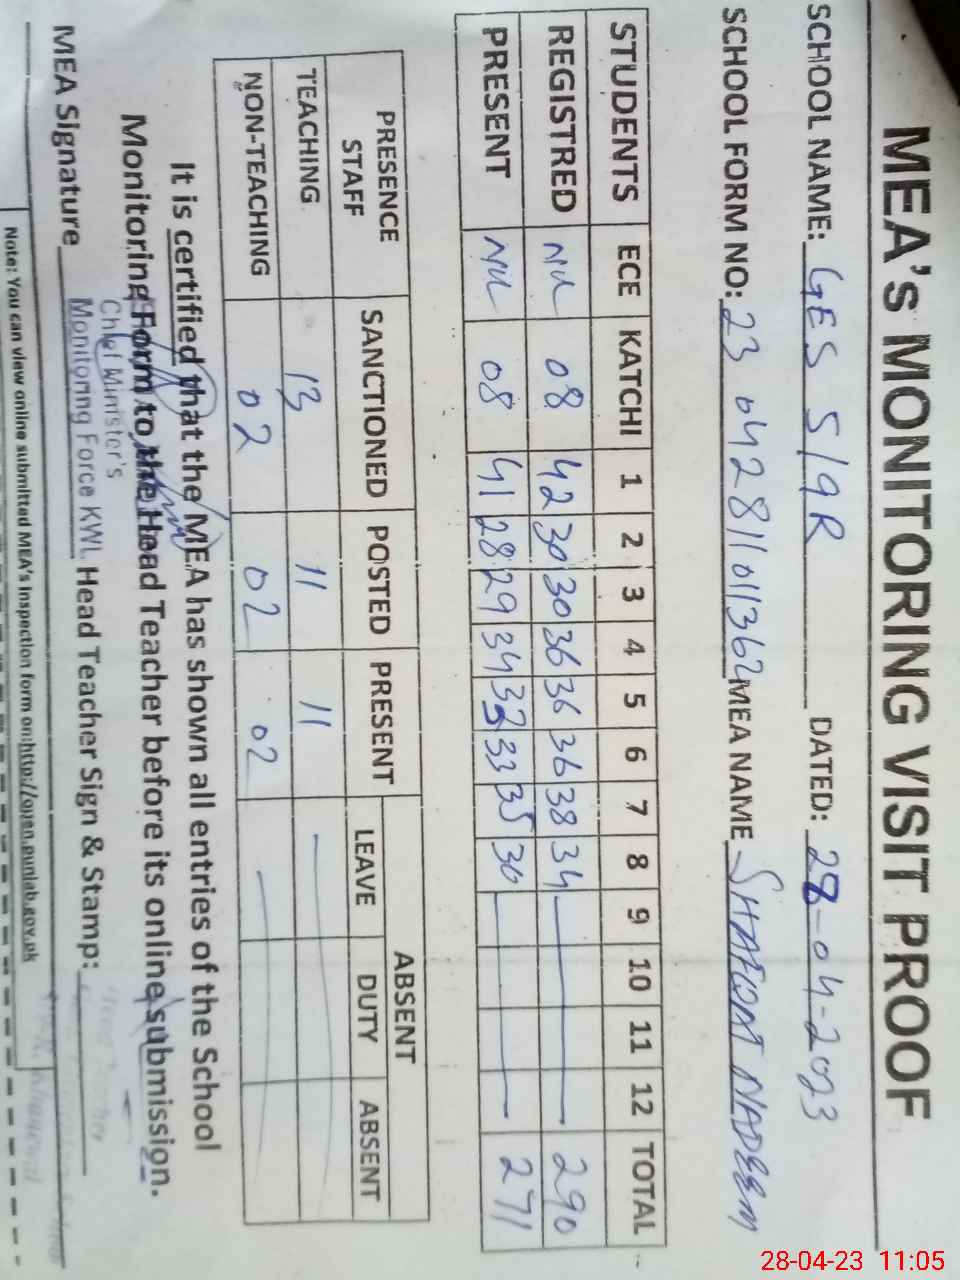 MEA's MONITORING VISIT PROOF
SCHOOL NAME: GES 5/9R DATED: 28-04-2023
SCHOOL FORM NO: 23 04281101362 MEA NAME SHAFQAT NADEEM
STUDENTS ECE KATCHI 1 2 3 4 5 6 7 8 9 10 11 12 TOTAL
REGISTRED NIL 08 42 30 30 36 36 36 38 34 290
PRESENT NIL 08 41 28 29 34 32 33 35 30 271
PRESENCE STAFF SANCTIONED POSTED PRESENT ABSENT
LEAVE DUTY ABSENT
TEACHING 13 11 11
NON-TEACHING 02 02 02
It is certified that the MEA has shown all entries of the School
Monitoring Form to the Head Teacher before its online submission.
Chief Minister's
MEA Signature Monitoring Force KWL Head Teacher Sign & Stamp:
Note: You can view online submitted MEA's Inspection form on:http://open.punjab.gov.pk
28-04-23 11:05